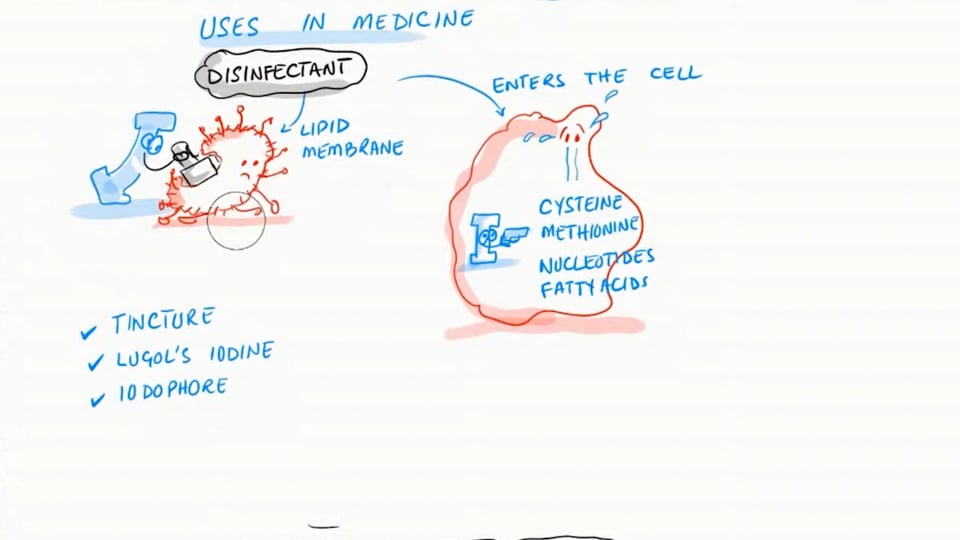 USES IN MEDICINE
DISINFECTANT
ENTERS THE CELL
LIPID
MEMBRANE
CYSTEINE
METHIONINE
NUCLEOTIDES
FATTY ACIDS
✓ TINCTURE
✓ LUGOL'S IODINE
✓ IODOPHORE